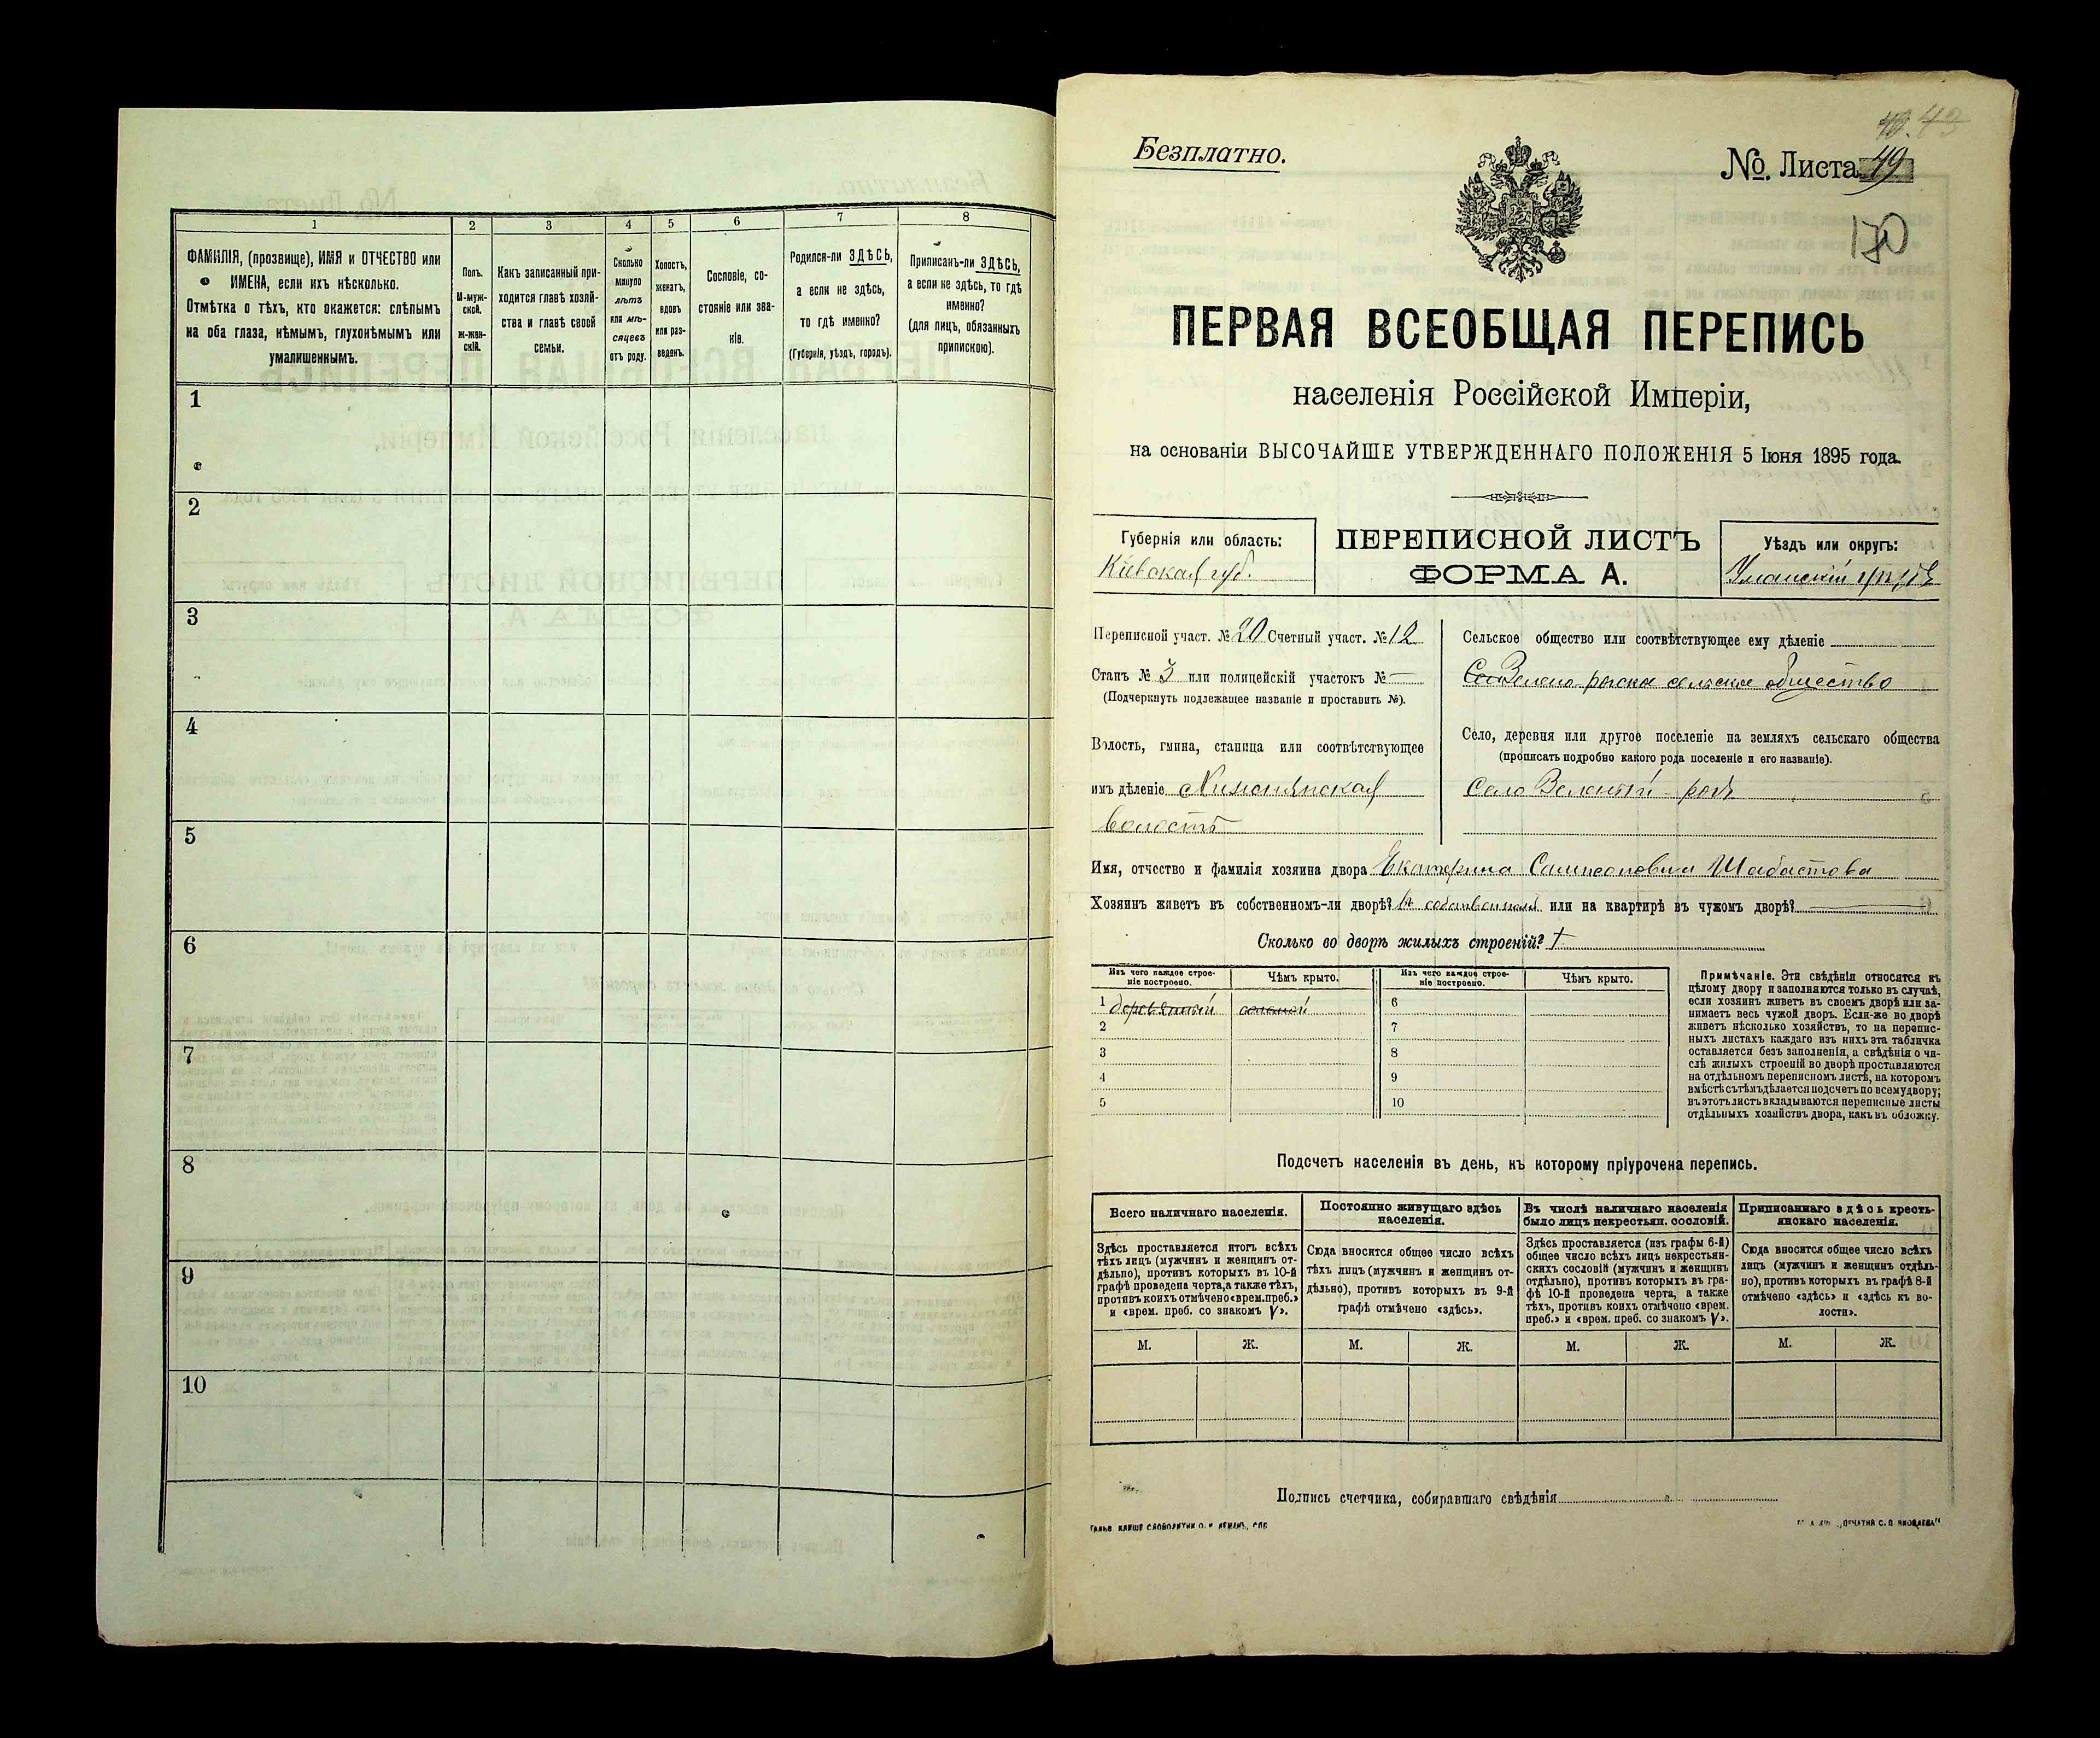 1
2
3
4
5
6
7
8
ФАМИЛІЯ, (прозвище), ИМЯ и ОТЧЕСТВО или
ИМЕНА, если ихъ нѣсколько.
Отмѣтка о тѣхъ, кто окажется: слѣпымъ
на оба глаза, нѣмымъ, глухонѣмымъ или
умалишеннымъ.
Полъ.
М-муж-
ской.
ж-жен-
скій.
Какъ записанный при-
ходится главѣ хозяй-
ства и главѣ своей
семьи.
Сколько
минуло
лѣтъ
или мѣ-
сяцевъ
отъ роду.
Холостъ,
женатъ,
вдовъ
или раз-
веденъ.
Сословіе, со-
стояніе или зва-
ніе.
Родился-ли ЗДѢСЬ,
а если не здѣсь,
то гдѣ именно?
(Губернія, уѣздъ, городъ).
Приписанъ-ли ЗДѢСЬ,
а если не здѣсь, то гдѣ
именно?
(для лицъ, обязанныхъ
припискою).
1
2
3
4
5
6
7
8
9
10
43
Безплатно.
№. Листа 49
170
ПЕРВАЯ ВСЕОБЩАЯ ПЕРЕПИСЬ
населенія Россійской Имперіи,
на основаніи ВЫСОЧАЙШЕ УТВЕРЖДЕННАГО ПОЛОЖЕНІЯ 5 Іюня 1895 года.
Губернія или область:
Кіевская губ.
ПЕРЕПИСНОЙ ЛИСТЪ
ФОРМА А.
Уѣздъ или округъ:
Уманскій уѣздъ
Переписной участ. № 20 Счетный участ. № 12
Станъ № 3 или полицейскій участокъ № —
(Подчеркнуть подлежащее названіе и проставить №).
Волость, гмина, станица или соотвѣтствующее
имъ дѣленіе
волость
Сельское общество или соотвѣтствующее ему дѣленіе
Зелено-рогское сельское общество
Село, деревня или другое поселеніе на земляхъ сельскаго общества
(прописать подробно какого рода поселеніе и его названіе).
Село Зеленый-рогъ
Имя, отчество и фамилія хозяина двора Екатерина Самсоновна Шабастова
Хозяинъ живетъ въ собственномъ-ли дворѣ? въ собственномъ или на квартирѣ въ чужомъ дворѣ? —
Сколько во дворѣ жилыхъ строеній? 1
Изъ чего каждое строе-
ніе построено.
Чѣмъ крыто.
Изъ чего каждое строе-
ніе построено.
Чѣмъ крыто.
1 деревянный соломой
2
3
4
5
6
7
8
9
10
Примѣчаніе. Эти свѣдѣнія относятся къ
цѣлому двору и заполняются только въ случаѣ,
если хозяинъ живетъ въ своемъ дворѣ или за-
нимаетъ весь чужой дворъ. Если-же во дворѣ
живетъ нѣсколько хозяйствъ, то на перепис-
ныхъ листахъ каждаго изъ нихъ эта табличка
оставляется безъ заполненія, а свѣдѣнія о чи-
слѣ жилыхъ строеній во дворѣ проставляются
на отдѣльномъ переписномъ листѣ, на которомъ
вмѣстѣ съ тѣмъ дѣлается подсчетъ по всему двору;
въ этотъ листъ вкладываются переписные листы
отдѣльныхъ хозяйствъ двора, какъ въ обложку.
Подсчетъ населенія въ день, къ которому пріурочена перепись.
Всего наличнаго населенія.
Здѣсь проставляется итогъ всѣхъ
тѣхъ лицъ (мужчинъ и женщинъ от-
дѣльно), противъ которыхъ въ 10-й
графѣ проведена черта, а также тѣхъ,
противъ коихъ отмѣчено «врем. преб.»
и «врем. преб. со знакомъ V».
Постоянно живущаго здѣсь
населенія.
Сюда вносится общее число всѣхъ
тѣхъ лицъ (мужчинъ и женщинъ от-
дѣльно), противъ которыхъ въ 9-й
графѣ отмѣчено «здѣсь».
Въ числѣ наличнаго населенія
было лицъ некрестьян. сословій.
Здѣсь проставляется (изъ графы 6-й)
общее число всѣхъ лицъ некрестьян-
скихъ сословій (мужчинъ и женщинъ
отдѣльно), противъ которыхъ въ гра-
фѣ 10-й проведена черта, а также
тѣхъ, противъ коихъ отмѣчено «врем.
преб.» и «врем. преб. со знакомъ V».
Приписаннаго здѣсь кресть-
янскаго населенія.
Сюда вносится общее число всѣхъ
лицъ (мужчинъ и женщинъ отдѣль-
но), противъ которыхъ въ графѣ 8-й
отмѣчено «здѣсь» и «здѣсь къ во-
лости».
М.
Ж.
М.
Ж.
М.
Ж.
М.
Ж.
Подпись счетчика, собиравшаго свѣдѣнія